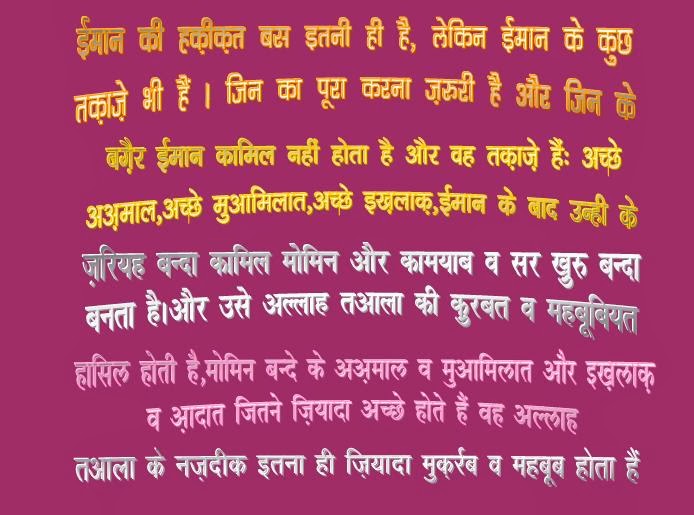 ईमान की हक़ीक़त बस इतनी ही है, लेकिन ईमान के कुछ
तक़ाज़े भी हैं । जिन का पूरा करना ज़रुरी है और जिन के
बग़ैर ईमान कामिल नहीं होता है और वह तक़ाज़े हैंः अच्छे
अअ़माल,अच्छे मुआमिलात,अच्छे इख़लाक़,ईमान के बाद उन्ही के
ज़रियह बन्दा कामिल मोमिन और कामयाब व सर खुरु बन्दा
बनता है।और उसे अल्लाह तआला की क़ुरबत व महबूबियत
हासिल होती है,मोमिन बन्दे के अअ़माल व मुआमिलात और इख़लाक़
व आ़दात जितने ज़ियादा अच्छे होते हैं वह अल्लाह
तआला के नज़दीक इतना ही ज़ियादा मुक़र्रब व महबूब होता हैं